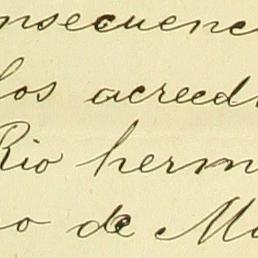 nsecuenc
los acreed
Rio herm
o de Ma